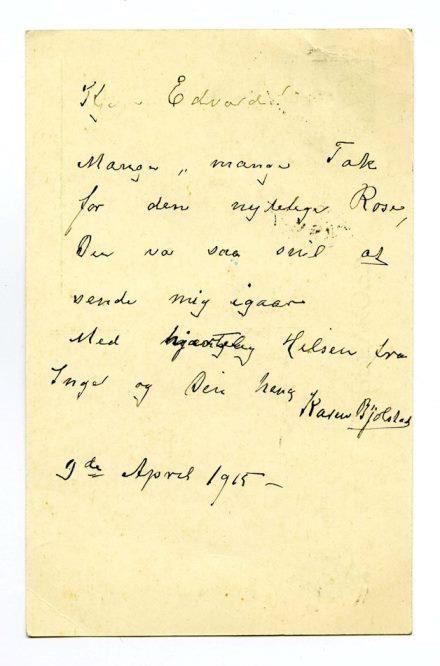 Kjære Edvard!
Mange, mange Tak
for den nydelige Rose,
Du va saa snil at
sende mig igaar
Med hjærtelig Hilsen fra
Inger og Din heng
Karen Bjölstad
9de April 1915 –